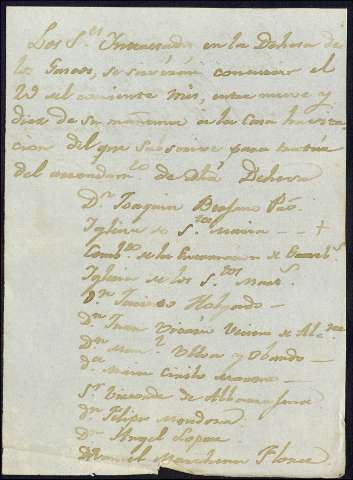 Los S.es Interesados en la Dehesa de
los Garces, se servirán concurrir el
29 del corriente mes, entre nueve y
diez de su mañana a la Casa habita
cion del que subscrive para tratar
del arrendam.to de dha Dehesa
D.n Joaquin
Iglesia de S.ta Maria — +
Comb.to de la Encarnacion de
Iglesia de los S.tos
D.n Hidalgo —
D.n Juan Vicario de
D.n Man.l Ulloa y Obando —
D.a Maria Moreno —
S.r Vizconde de
D.n Felipe Mendoza
D.n Angel Lopez
D.n Manuel Marchena Flores